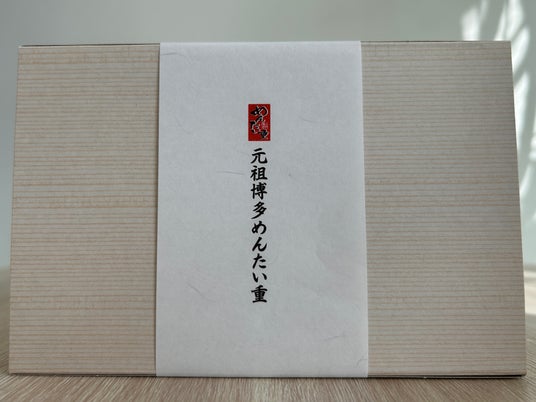 元祖博多めんたい重